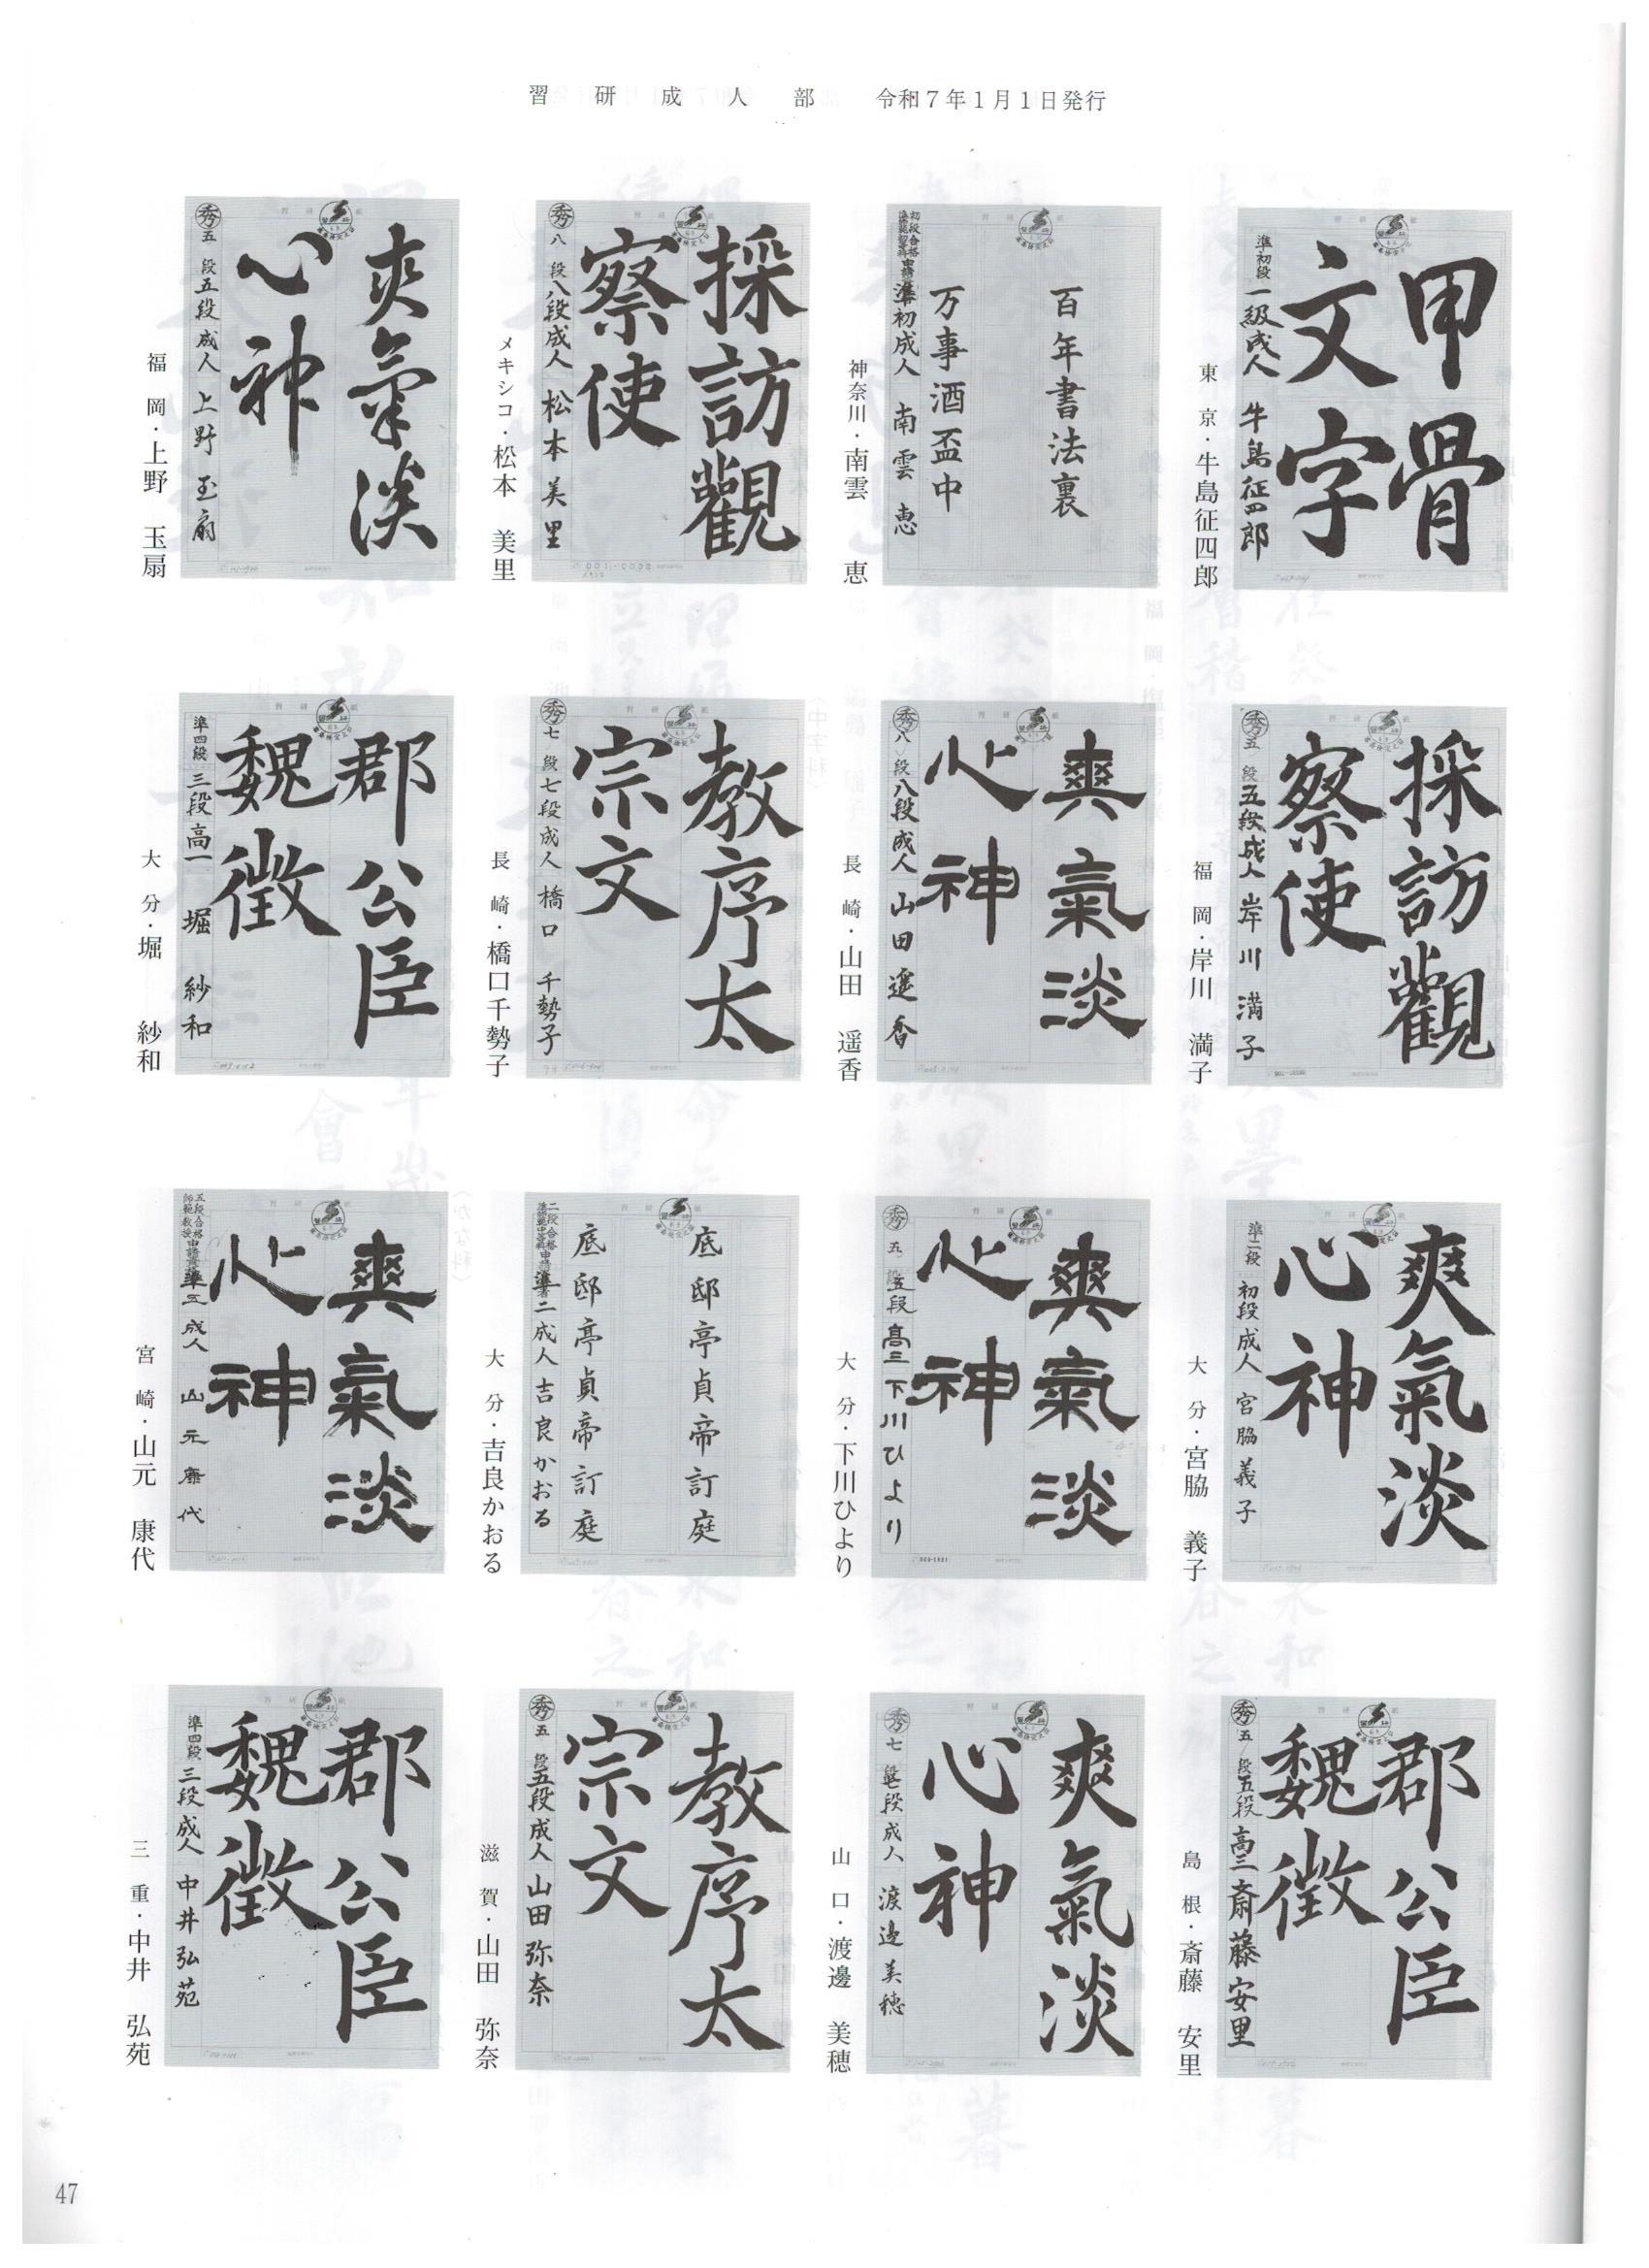 習研成人部　令和7年1月1日発行
甲骨
文字
準初段
一級成人　牛島征四郎
東京・牛島征四郎
百年書法裏
万事酒盃中
初段合格
準初成人　南雲　恵
神奈川・南雲　恵
採訪觀
察使
秀八段
八段成人　松本美里
メキシコ・松本　美里
爽氣淡
心神
秀五段
五段成人　上野玉扇
福岡・上野　玉扇
採訪觀
察使
秀五段
五段成人　岸川満子
福岡・岸川　満子
爽氣淡
心神
秀八段
八段成人　山田遥香
長崎・山田　遥香
教序太
宗文
秀七段
七段成人　橋口千勢子
長崎・橋口千勢子
郡公臣
魏徴
準四段
三段高一　堀　紗和
大分・堀　紗和
爽氣淡
心神
準二段
初段成人　宮脇義子
大分・宮脇　義子
爽氣淡
心神
秀五段
五段高三　下川ひより
大分・下川ひより
底邸亭貞帝訂庭
底邸亭貞帝訂庭
二段合格
準二成人　吉良かおる
大分・吉良かおる
爽氣淡
心神
五段合格
師範教授申請資格
準五成人　山元康代
宮崎・山元　康代
郡公臣
魏徴
秀五段
五段高三　斎藤安里
島根・斎藤　安里
爽氣淡
心神
秀七段
七段成人　渡邊美穂
山口・渡邊　美穂
教序太
宗文
秀五段
五段成人　山田弥奈
滋賀・山田　弥奈
郡公臣
魏徴
準四段
三段成人　中井弘苑
三重・中井　弘苑
47